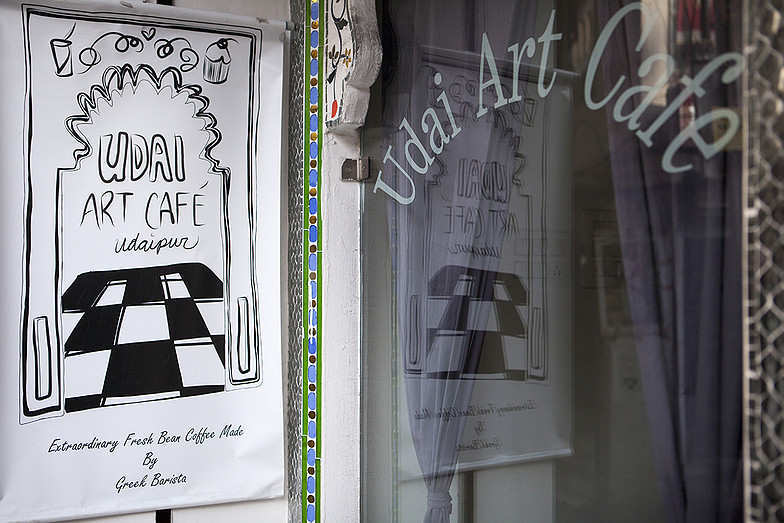 UDAI
ART CAFÉ
Udaipur
Extraordinary Fresh Bean Coffee Made
By
Greek Barista
Udai Art Cafe